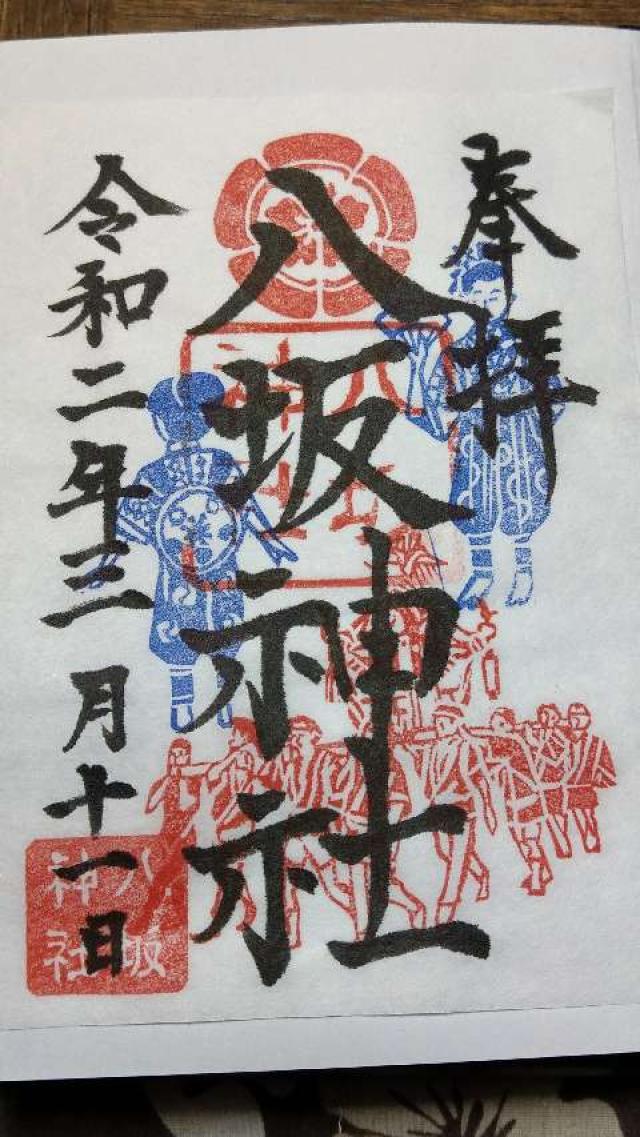 奉拝
八坂神社
令和二年三月十一日
八坂
神社